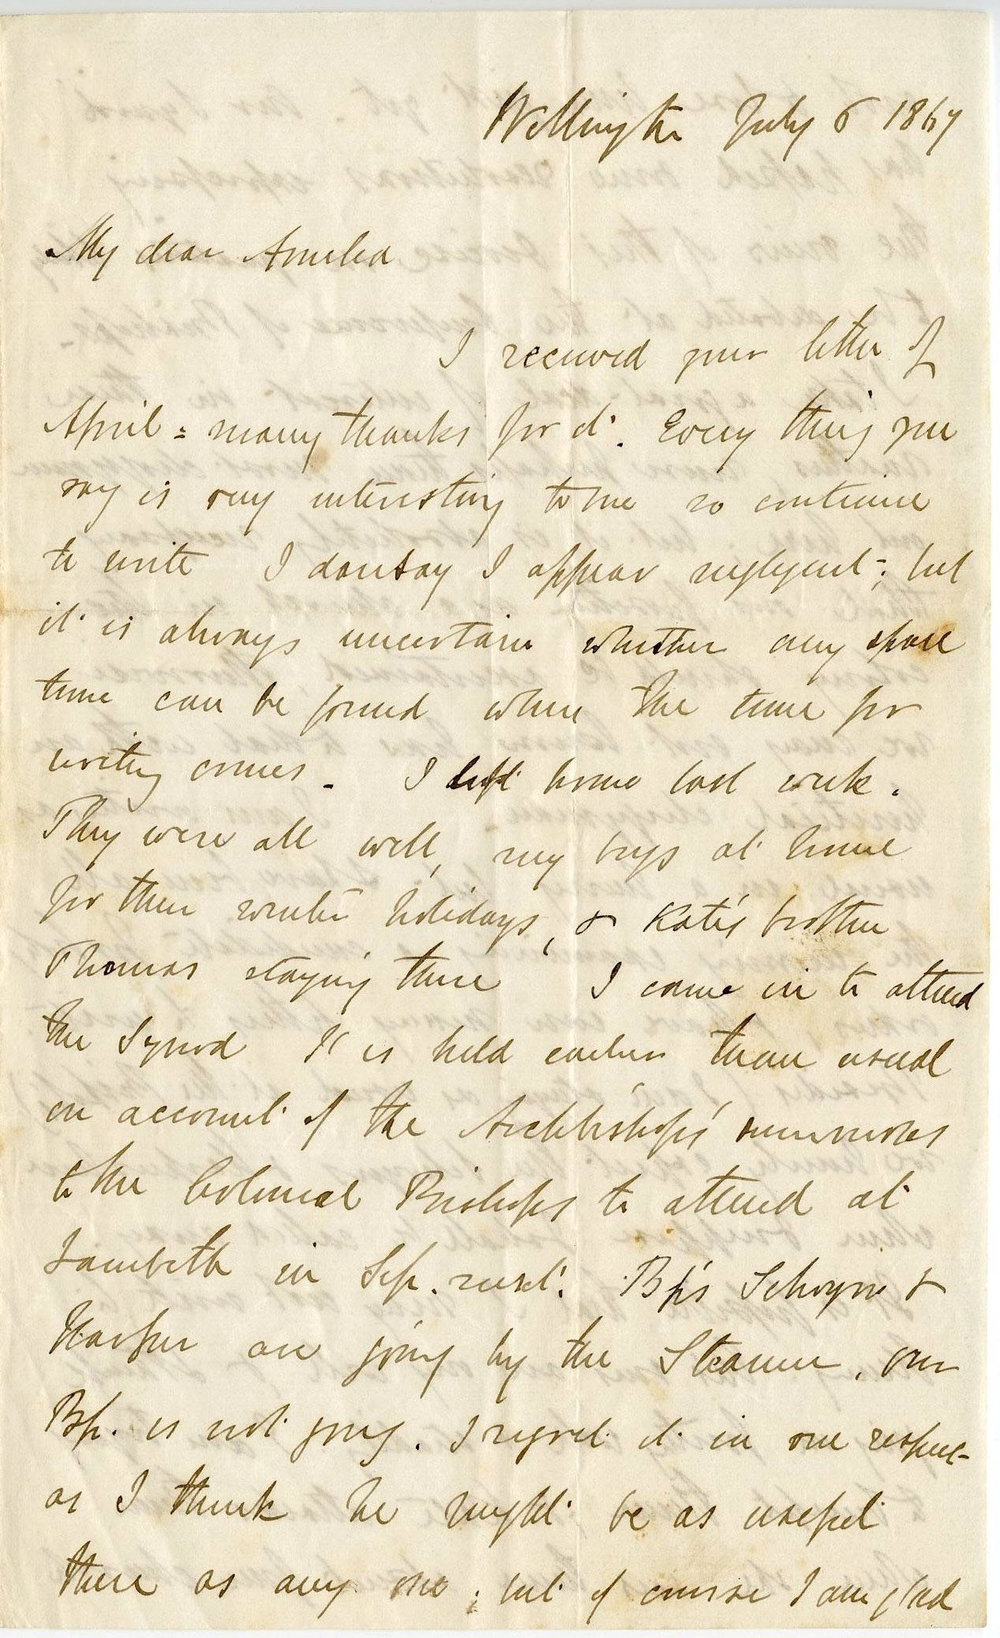 Wellington July 6 1867
My dear Amelia
I received your letter of
April = many thanks for it. Every thing you
say is very interesting to me so continue
to write I dont say I appear negligent; but
it is always uncertain whether any spare
time can be found when the time for
writing comes. I left home last week.
They were all well, my boys at home
for their winter holidays, & Kate's brother
Thomas staying there I came in to attend
the Synod It is held earlier than usual
on account of the Archbishop's summons
to the Colonial Bishops to attend at
Lambeth in Sep. next. Bp's Selwyn &
Harper are going by the Steamer, our
Bp. is not going. I regret it in one respect
as I think he might be as useful
there as any one; but of course I am glad